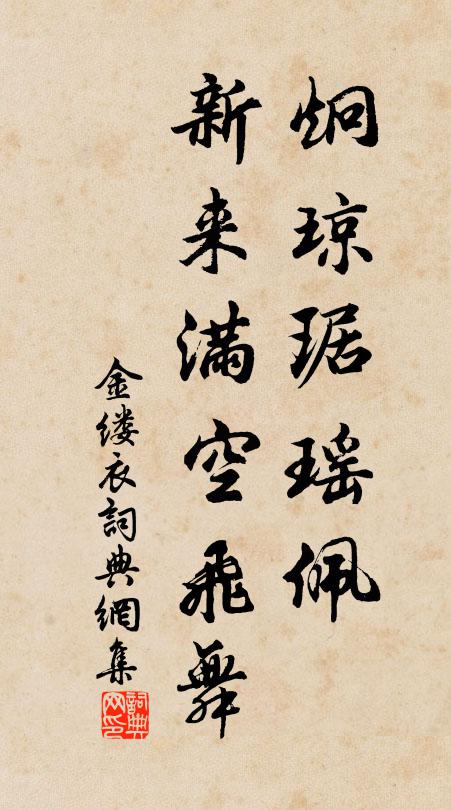 炯琼琚瑶佩
新来满空飛舞
金缕衣詞典網集
詞典网印